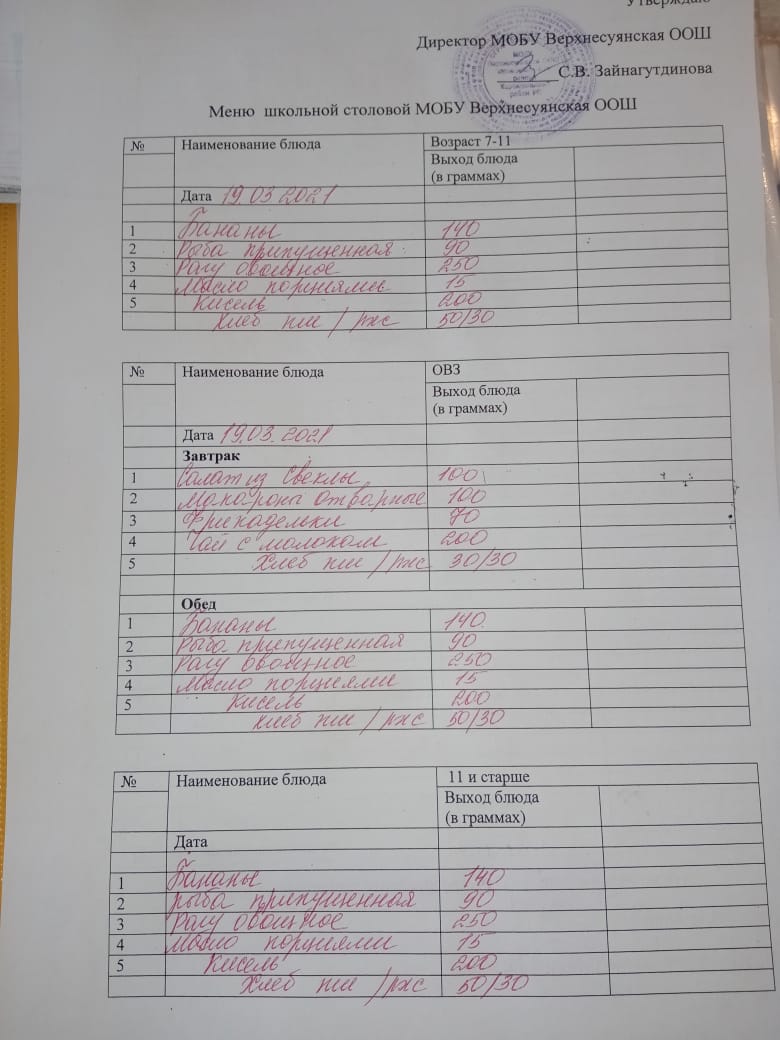 Утверждаю
Директор МОБУ Верхнесуянская ООШ
С.В. Зайнагутдинова
Меню школьной столовой МОБУ Верхнесуянская ООШ
№ Наименование блюда Возраст 7-11
Выход блюда
(в граммах)
Дата 19.03 2021
1 Бананы 140
2 Рыба припущенная 90
3 Рагу овощное 250
4 Масло порциями 15
5 Кисель 200
Хлеб пш / рж 50/30
№ Наименование блюда ОВЗ
Выход блюда
(в граммах)
Дата 19.03. 2021
Завтрак
1 Салат из свеклы 100
2 Макароны отварные 100
3 Фрикадельки 70
4 Чай с молоком 200
5 Хлеб пш / рж 30/30
Обед
1 Бананы 140
2 Рыба припущенная 90
3 Рагу овощное 250
4 Масло порциями 15
5 Кисель 200
хлеб пш / рж 50/30
№ Наименование блюда 11 и старше
Выход блюда
(в граммах)
Дата
1 Бананы 140
2 рыба припущенная 90
3 Рагу овощное 250
4 Масло порциями 15
5 Кисель 200
Хлеб пш / рж 50/30